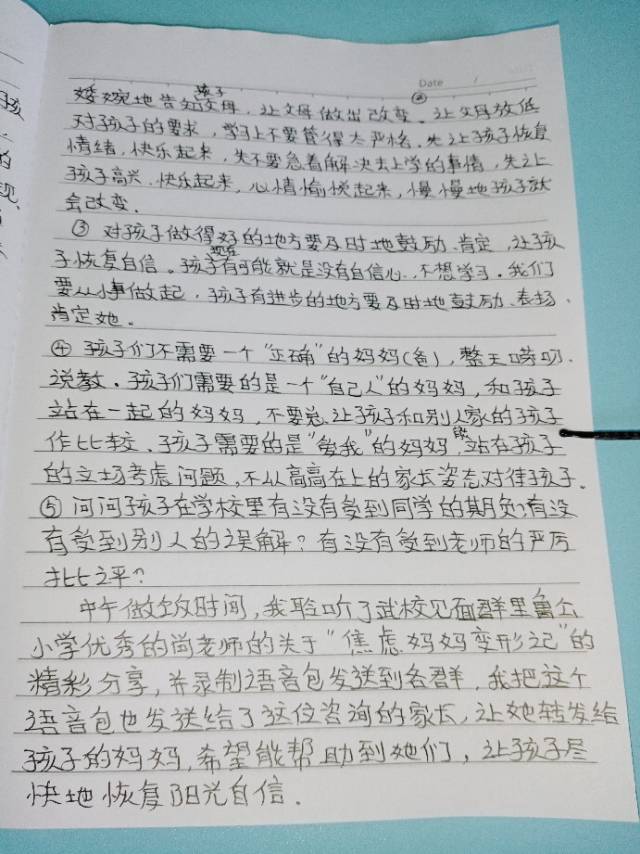 Date /
婉婉地告知孩子父母,让父母做出改变。②让父母放低
对孩子的要求,学习上不要管得太严格,先让孩子恢复
情绪,快乐起来,先不要急着解决去上学的事情,先让
孩子高兴、快乐起来,心情愉悦起来,慢慢地孩子就
会改变。
③ 对孩子做得好的地方要及时地鼓励、肯定,让孩
子恢复自信。孩子现在有可能就是没有自信心,不想学习。我们
要从小事做起,孩子有进步的地方要及时地鼓励、表扬、
肯定她。
④ 孩子们不需要一个“正确”的妈妈(爸),整天唠叨、
说教。孩子们需要的是一个“自己人”的妈妈,和孩子
站在一起的妈妈,不要总让孩子和别人家的孩子
作比较。孩子需要的是“爱我”的妈妈,能站在孩子
的立场考虑问题,不以高高在上的家长姿态对待孩子。
⑤ 问问孩子在学校里有没有受到同学的欺负?有没
有受到别人的误解?有没有受到老师的严厉
批评?
中午做饭时间,我聆听了武校见面群里鲁公
小学优秀的尚老师的关于“焦虑妈妈变形记”的
精彩分享,并录制语音包发送到各群,我把这个
语音包也发送给了这位咨询的家长,让她转发给
孩子的妈妈,希望能帮助到她们,让孩子尽
快地恢复阳光自信。